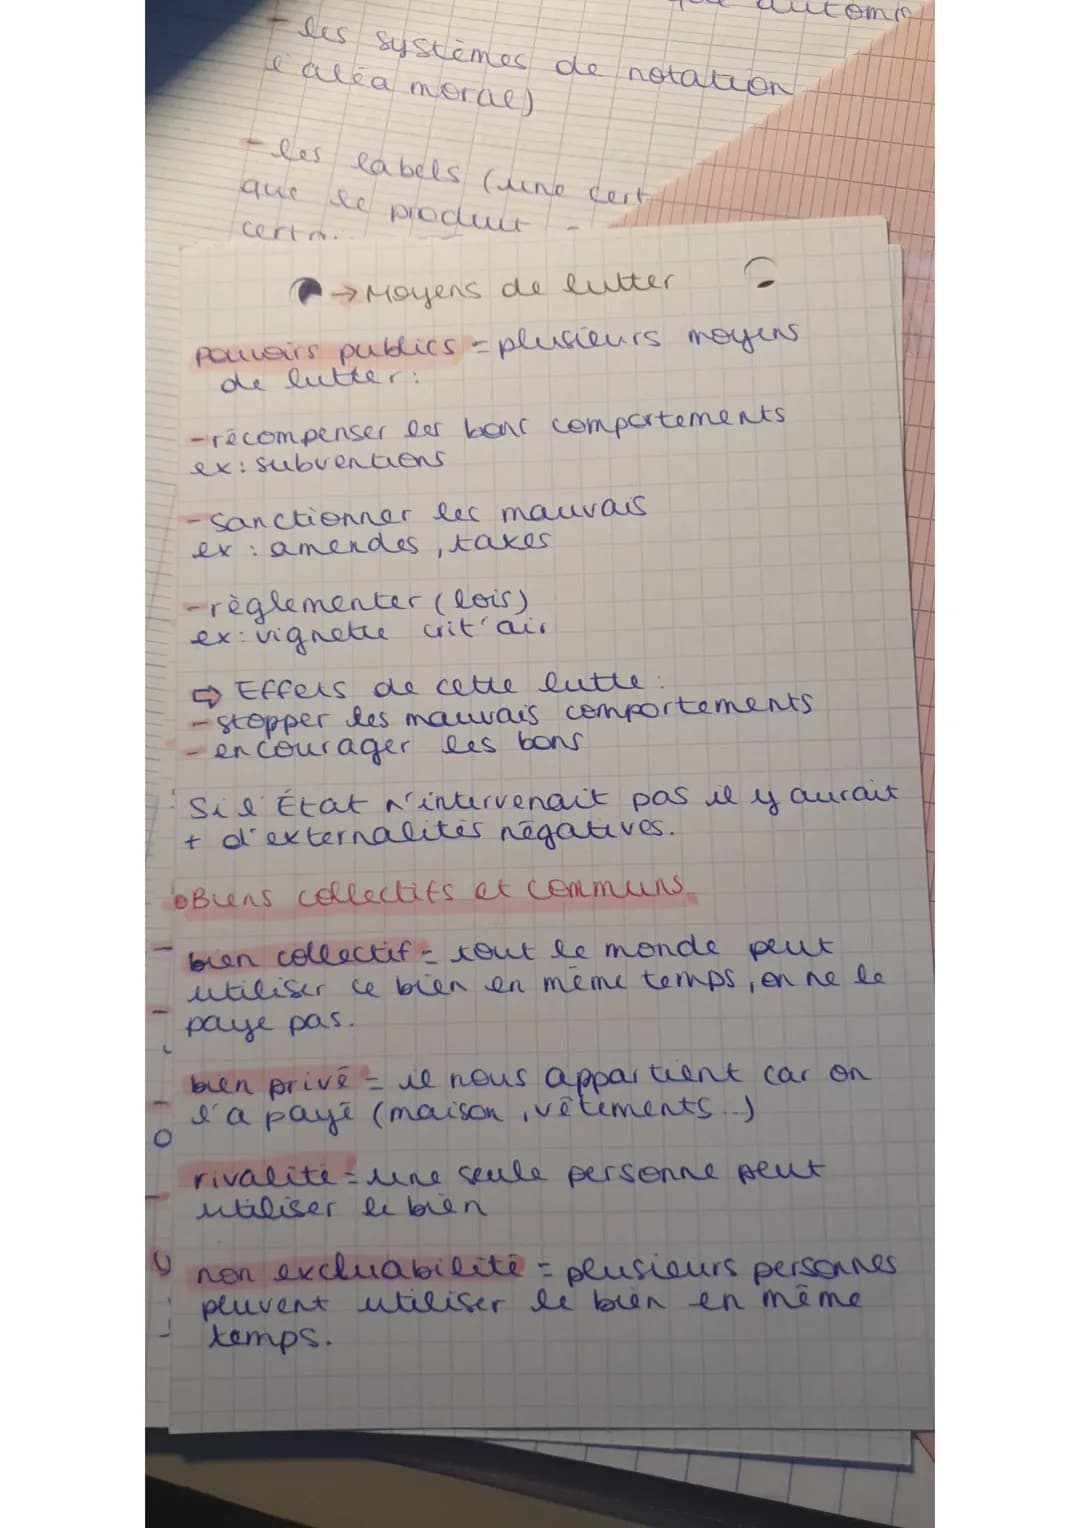 autom
- les systèmes de notation
l'aléa moral)
- les labels (une cert
que le produit
→ Moyens de lutter
pouvoirs publics = plusieurs moyens
de lutter :
- récompenser les bons comportements
ex : subventions
- sanctionner les mauvais
ex : amendes, taxes
- règlementer (lois)
ex : vignette crit'air
⇨ Effets de cette lutte :
- stopper les mauvais comportements
- encourager les bons
Si l'État n'intervenait pas il y aurait
+ d'externalités négatives.
• Biens collectifs et communs
bien collectif = tout le monde peut
utiliser ce bien en même temps, on ne le
paye pas.
bien privé = il nous appartient car on
l'a payé (maison, vêtements...)
rivalité = une seule personne peut
utiliser le bien
non excluabilité = plusieurs personnes
peuvent utiliser le bien en même
temps.